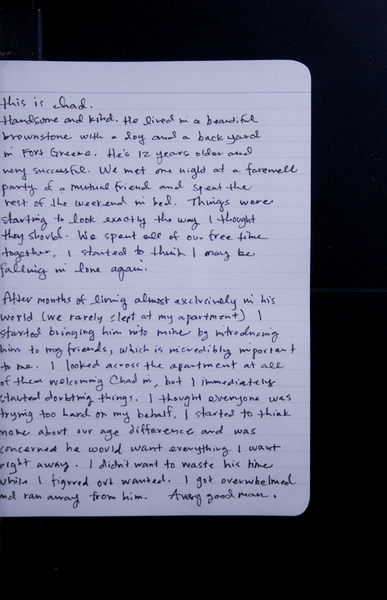 this is Chad.
Handsome and kind. He lived in a beautiful
brownstone with a dog and a back yard
in Fort Greene. He's 12 years older and
very successful. We met one night at a farewell
party of a mutual friend and spent the
rest of the weekend in bed. Things were
starting to look exactly the way I thought
they should. We spent all of our free time
together, I started to think I may be
falling in love again.
After months of living almost exclusively in his
world (we rarely slept at my apartment) I
started bringing him into mine by introducing
him to my friends, which is incredibly important
to me. I looked across the apartment at all
of them welcoming Chad in, but I immediately
started doubting things. I thought everyone was
trying too hard on my behalf. I started to think
more about our age difference and was
concerned he would want everything I want
right away. I didn't want to waste his time
while I figured out wanted. I got overwhelmed
and ran away from him. A very good man.